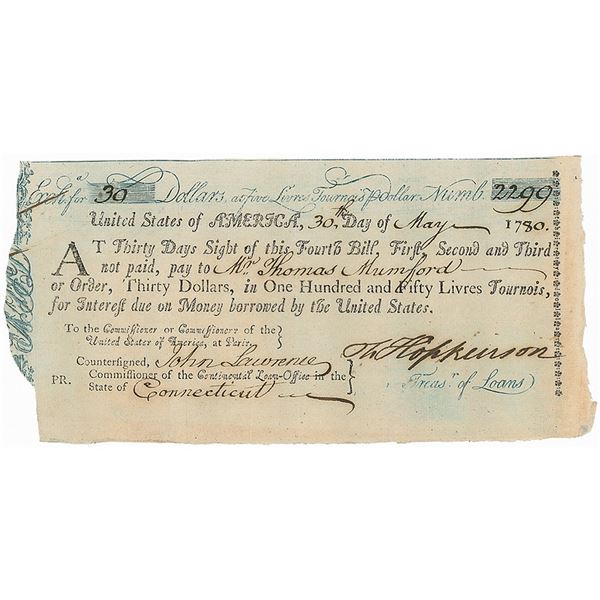 Exch.ª for 30 Dollars, at five Livres Tournois ⅌ Dollar. Numb. 2299
United States of AMERICA, 30th Day of May 1780.
AT Thirty Days Sight of this Fourth Bill, First, Second and Third
not paid, pay to Mr. Thomas Mumford
or Order, Thirty Dollars, in One Hundred and Fifty Livres Tournois,
for Interest due on Money borrowed by the United States.
To the Commissioner or Commissioners of the
United States of America, at Paris.
Countersigned, John Lawrence
Commissioner of the Continental Loan-Office in the
PR.
State of Connecticut
Hopkinson
Treas.r of Loans